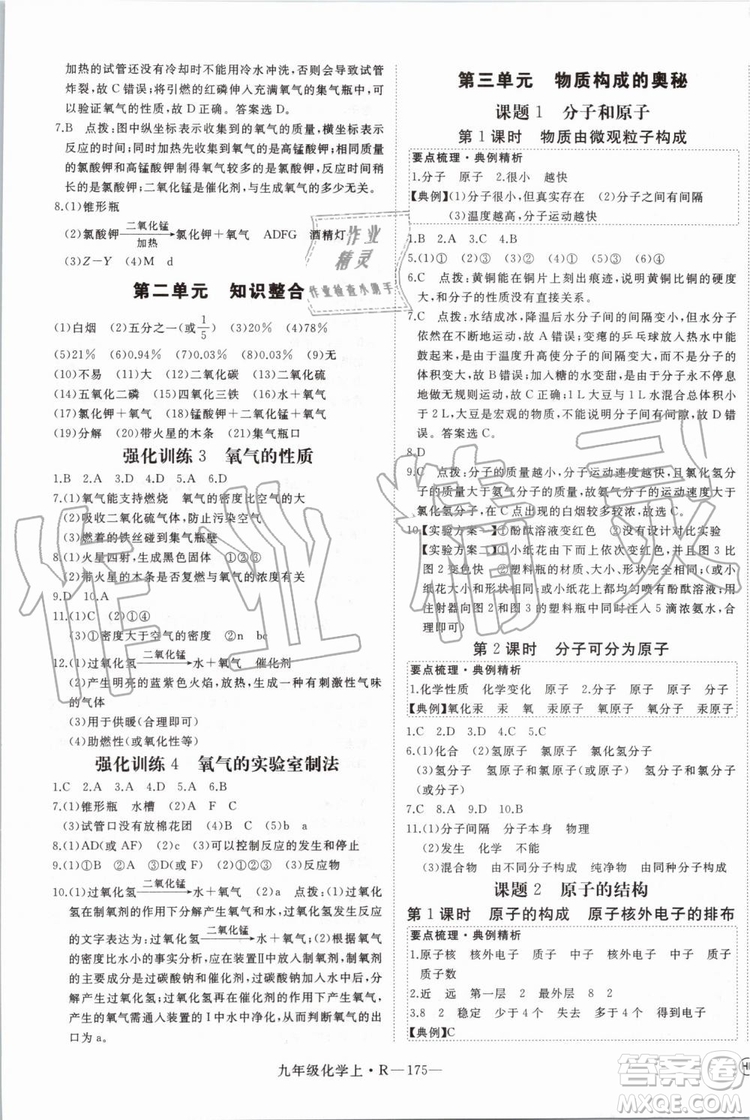 加热的试管还没有冷却时不能用冷水冲洗,否则会引起试管
炸裂,故C错误;将引燃的红磷伸入充满氧气的集气瓶中,可
以验证氧气的助燃性,故D错误。答案选A。
7.B 点拨:图中纵坐标表示收集到的氧气的质量,横坐标表示
反应的时间;同时加热等质量的氯酸钾和高锰酸钾,高锰酸
钾先产生氧气,氯酸钾产生的氧气较多的是高锰酸钾和
的氯酸钾和二氧化锰,二氧化锰是催化剂,反应前后质量不
变,故A、C、D错误。答案选B。
8.(1)锥形瓶
(2)氯酸钾 二氧化锰/加热 氯化钾+氧气 ADFG 酒精灯
(3)Z—Y (4)Mn
第二单元 知识整合
(1)白烟 (2)五分之一(或1/5) (3)20% (4)78%
(5)21% (6)0.94% (7)0.03% (8)0.03% (9)无
(10)不易 (11)大 (12)二氧化碳 (13)二氧化硫
(14)五氧化二磷 (15)四氧化三铁 (16)水+氧气
(17)氯化钾+氧气 (18)锰酸钾+二氧化锰+氧气
(19)分解 (20)带火星的木条 (21)集气瓶口
强化训练3 氧气的性质
1.B 2.A 3.D 4.D 5.D 6.B
7.(1)氧气能支持燃烧 氧气的密度比空气的大
(2)吸收二氧化硫气体,防止污染空气
(3)燃着的铁丝碰到集气瓶壁
8.(1)火星四射,生成黑色固体 ①②③
(2)带火星的木条是否复燃 ②③①
9.D 10.A
11.(1)C (2)①④
(3)①密度大于空气的密度 ②n bc
12.(1)过氧化氢 二氧化锰 水+氧气 催化剂
(2)产生明亮的蓝紫色火焰,放热,生成有刺激性气味
的气体
(3)用于供暖(或取暖)
(4)助燃性(或氧化性)
强化训练4 氧气的实验室制法
1.C 2.A 3.A 4.A 5.A 6.B
7.(1)锥形瓶 水槽 (2)B A F
(3)试管口没有放棉花团 (4)5 (5)b a
8.(1)AD (2)c (3)可以控制反应的发生和停止
9.(1)①② ②④ ③D ④ae (2)B
10.(1)过氧化氢 二氧化锰 水+氧气 (2)a 点拨:过氧化氢
在制氧剂的作用下产生氧气和水,故过氧化氢发生反应
的文字表达为:过氧化氢 二氧化锰 水+氧气;根据氧气的
密度比水小的事实分析,应在装置Ⅱ中制取氧气,制氧剂
的主要成分是过碳酸钠和催化剂,过碳酸钠与水反应生
成碳酸钠和过氧化氢,过氧化氢再在催化剂的作用下产
生氧气。故制氧剂和水在装置Ⅱ中混合产生氧气,产生的
氧气需通入装置Ⅰ中以便观察和加湿,故氧气的导出
口为a。
第三单元 物质构成的奥秘
课题1 分子和原子
第1课时 物质由微观粒子构成
要点梳理·典例精析
1.分子 原子 2.很小 越快
【典例】(1)分子很小,但真实存在 (2)分子之间有间隔
(3)温度越高,分子运动越快
1.B 2.D 3.A 4.D
5.(1)① (2)② (3)④ (4)③
6.C 点拨:黄铜能在铜片上刻出痕迹,说明黄铜比铜的硬度
大。答案选C。
7.C 点拨:水结成冰,降温后水分子运动速率变慢,但仍然
在不断地运动,故A错误;变瘪的乒乓球放入热水中,鼓起来
是由于温度升高使分子的间隔变大,而分子的体积不变,故
B错误;加入糖的水变甜,是由于构成糖的分子不断运动的
结果,故C正确;由于分子间有间隔,1 L水与1 L水混合总体积等
于2 L,大豆是宏观的物质,不能说明分子间有间隔,故D
错误。答案选C。
8.D
9.C 点拨:分子的质量越小,分子运动速率越快,且氯化氢分
子的质量大于氨气分子的质量,故氨气分子运动速率快,
氯化氢分子运动慢,产生的白烟较多较浓,故选C。
10.【实验方案一】①酚酞溶液变红色 ②没有设计对比实验
【实验方案二】①小纸花在放出氨水后变红,图2比图3
变色快 ②塑料瓶的大小、体积、形状完全相同。③(或
小纸花大小形状相同)④小纸花上都均匀喷有酚酞溶液,用
注射器向图2和图3的塑料瓶中各滴5滴浓氨水,也
可得到①
第2课时 分子可分为原子
要点梳理·典例精析
1.化学性质 化学变化 原子 2.原子 分子
【典例】氧化汞 汞 氧 汞原子 氧分子 汞原子
1.C 2.D 3.D 4.C 5.C
6.(1)化合 (2)氢原子 氯原子 氯化氢分子
(3)氢分子 氯分子 氯化氢分子 氢原子 氯原子
7.C 8.A 9.D 10.B
11.(1)分子间隔 分子本身 物理
(2)发生 化学 能
(3)混合物 由不同分子构成 纯净物 由同种分子构成
课题2 原子的结构
第1课时 原子的构成 原子核外电子的排布
要点梳理·典例精析
1.原子核 核外电子 质子 中子 质子 核外电子
质子数
2.近 远 第一层 2 最外层 8 2
3.8 2 稳定 少于4 大于4 电子
【典例】C
九年级化学上·R—175—